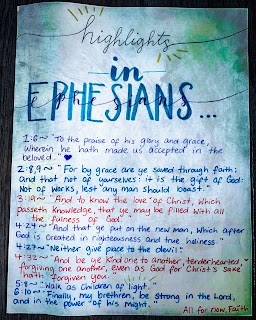 highlights
in
EPHESIANS...
ephesians
1:6~ "To the praise of his glory and grace,
wherein he hath made us accepted in the
beloved." ♥
2:8,9~ "For by grace are ye saved through faith;
and that not of yourselves: it is the gift of God:
Not of works, lest any man should boast."
3:19~ "And to know the love of Christ, which
passeth knowledge, that ye may be filled with all
the fulness of God."
4:24~ "And that ye put on the new man, which after
God is created in righteousness and true holiness."
4:27~ "Neither give place to the devil."
4:32~ "And be ye kind one to another, tenderhearted,
forgiving one another, even as God for Christ's sake
hath forgiven you."
5:8~ "Walk as children of light."
6:10~ "Finally, my brethren, be strong in the Lord,
and in the power of his might."
All for now, Faith